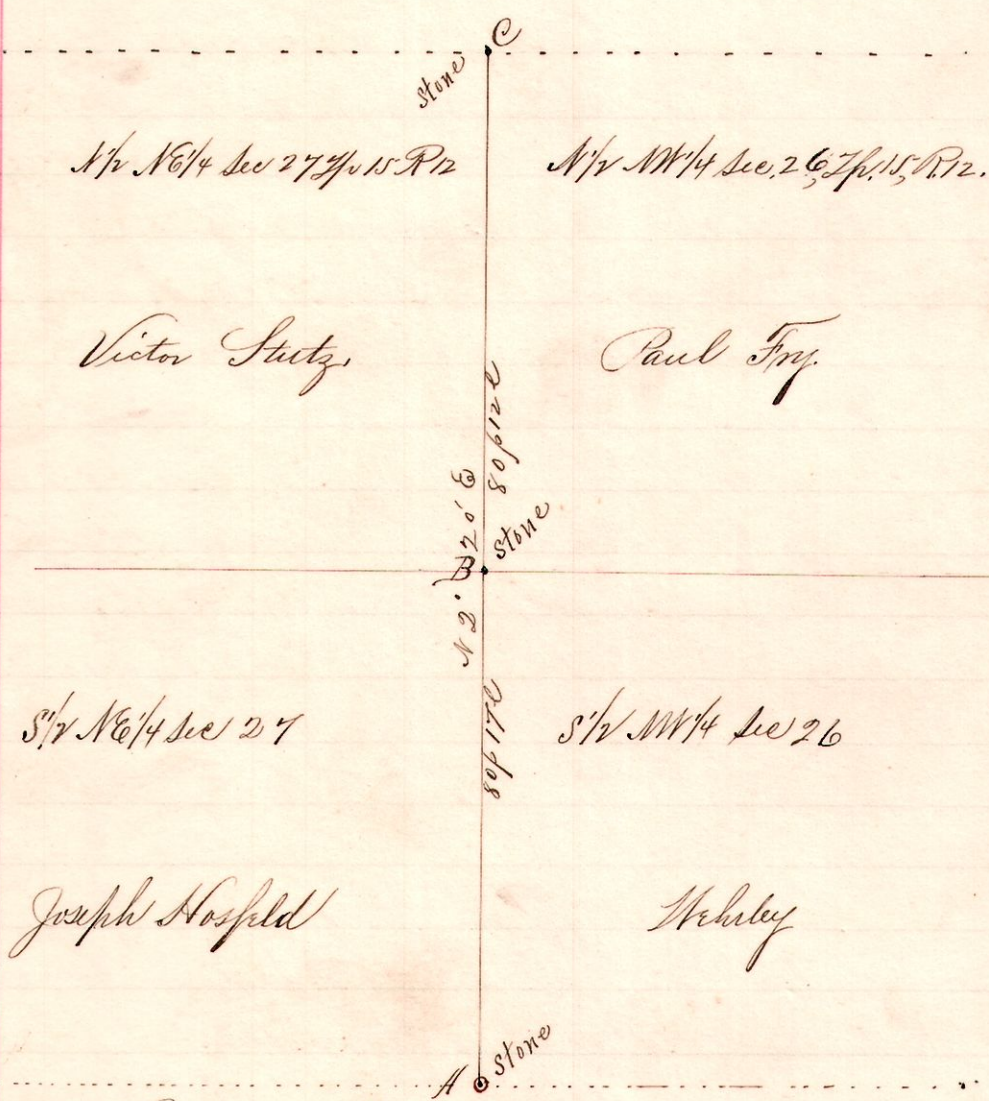 C
stone
N 1/2 NE 1/4 Sec 27 Tp 15 R 12
N 1/2 NW 1/4 Sec. 26, Tp. 15, R. 12.
Victor Stutz.
Paul Fry.
80p 12l
N 2° 20' E
stone
B
80p 17l
S 1/2 NE 1/4 Sec 27
S 1/2 NW 1/4 Sec 26
Joseph Hosfeld
Wehrley
stone
A